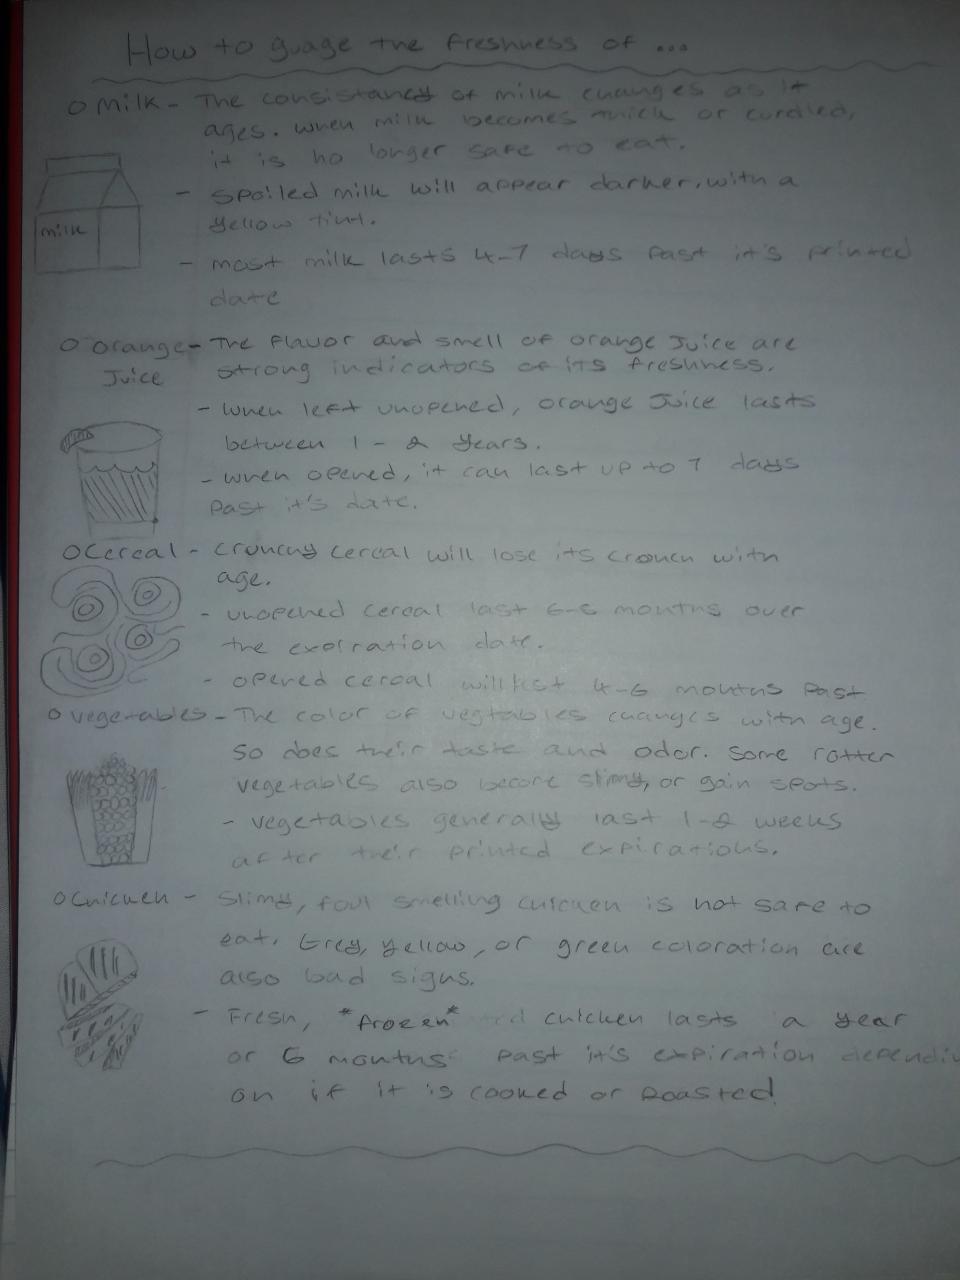 How to guage the freshness of ...
O Milk - The consistancy of milk changes as it
ages. when milk becomes thick or curdled,
it is no longer safe to eat.
- spoiled milk will appear darker, with a
yellow tint.
milk
- most milk lasts 4-7 days past it's printed
date
O orange - The flavor and smell of orange juice are
Juice strong indicators of its freshness.
- when left unopened, orange juice lasts
between 1 - 2 years.
- when opened, it can last up to 7 days
past it's date.
O Cereal - crounchy cereal will lose its crounch with
age.
- unopened cereal last 6-8 months over
the expiration date.
- opened cereal will last 4-6 months past
O vegetables - The color of vegtables changes with age.
so does their taste and odor. some rotten
vegetables also become slimy, or gain spots.
- vegetables generally last 1-2 weeks
after their printed expirations.
O Chicken - Slimy, foul smelling chicken is not safe to
eat. Grey, yellow, or green coloration are
also bad signs.
- Fresh, *frozen* chicken lasts a year
or 6 months past it's expiration
on if it is cooked or roasted.